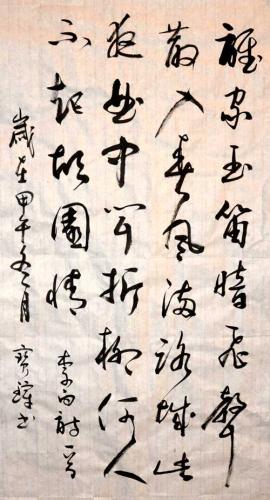 誰家玉笛暗飛聲
散入春風滿洛城此
夜曲中闻折柳何人
不起故園情 李白詩一首
歲在甲午冬月 书